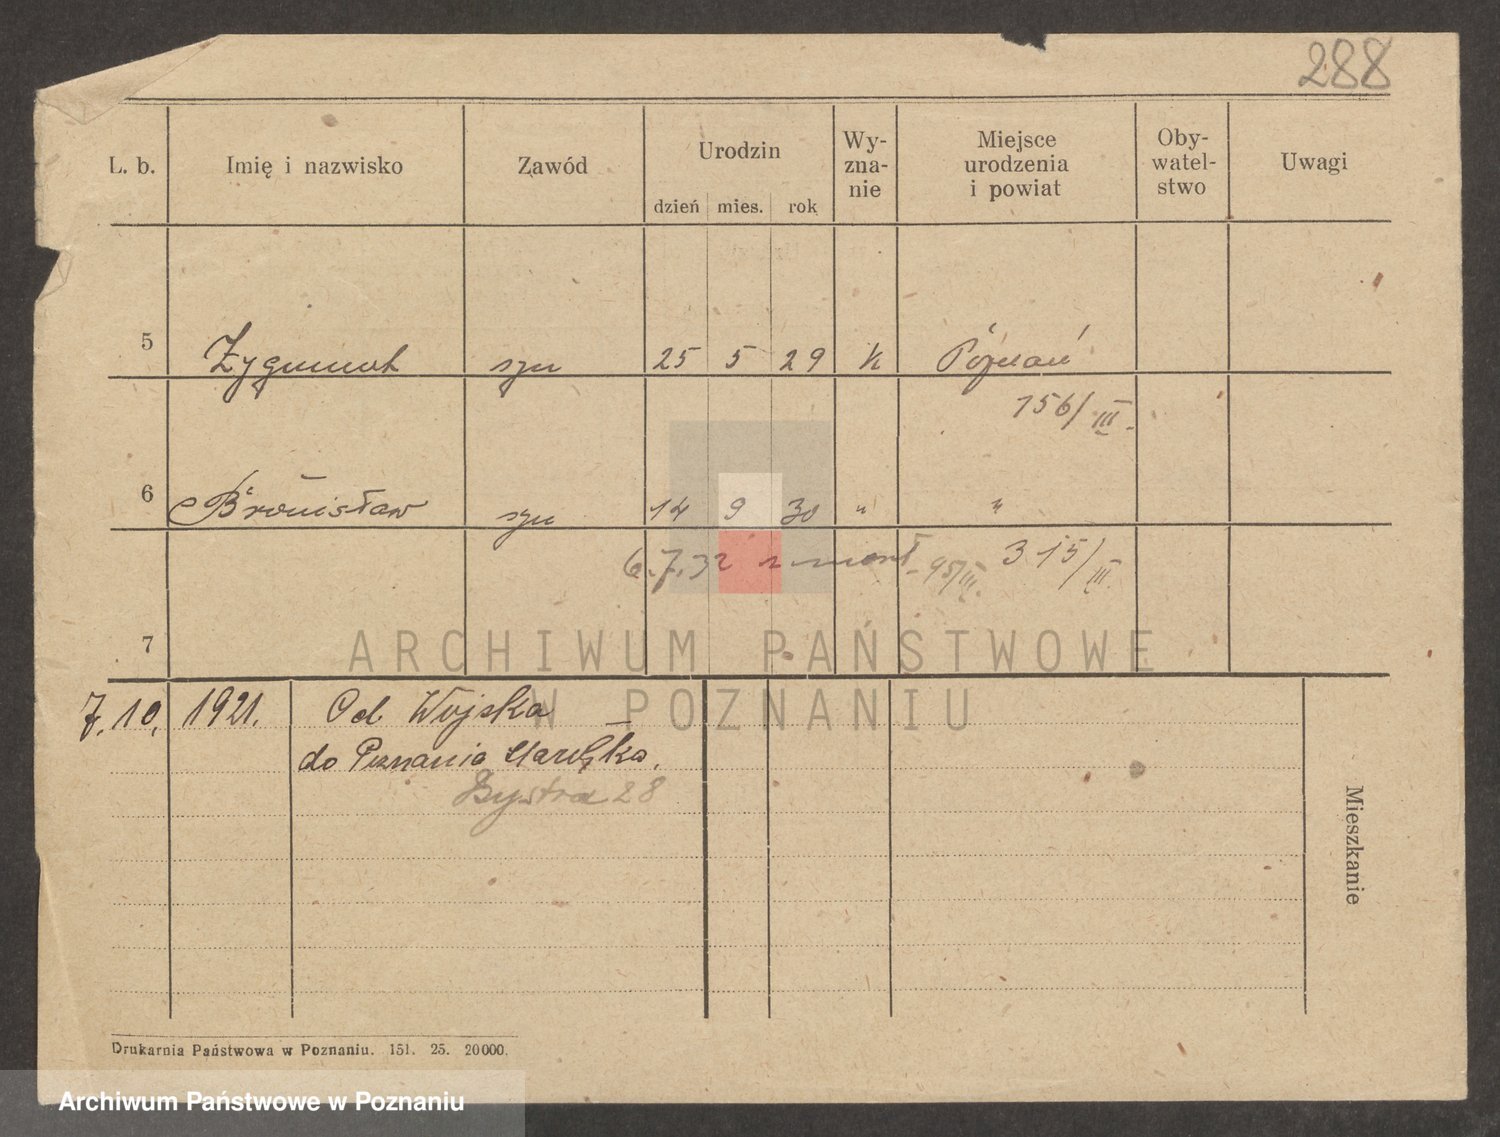 288
L. b. Imię i nazwisko Zawód Urodzin dzień mies. rok Wy-zna-nie Miejsce urodzenia i powiat Oby-watel-stwo Uwagi
5 Zygmunt syn 25 5 29 k Poznań
156/III.
6 Bronisław syn 14 9 30 " "
6.7.32 95/III. 315/III.
7
ARCHIWUM PAŃSTWOWE
W POZNANIU
7.10. 1921. Od Wojska
do Poznania
Bystra 28
Mieszkanie
Drukarnia Państwowa w Poznaniu. 151. 25. 20000.
Archiwum Państwowe w Poznaniu